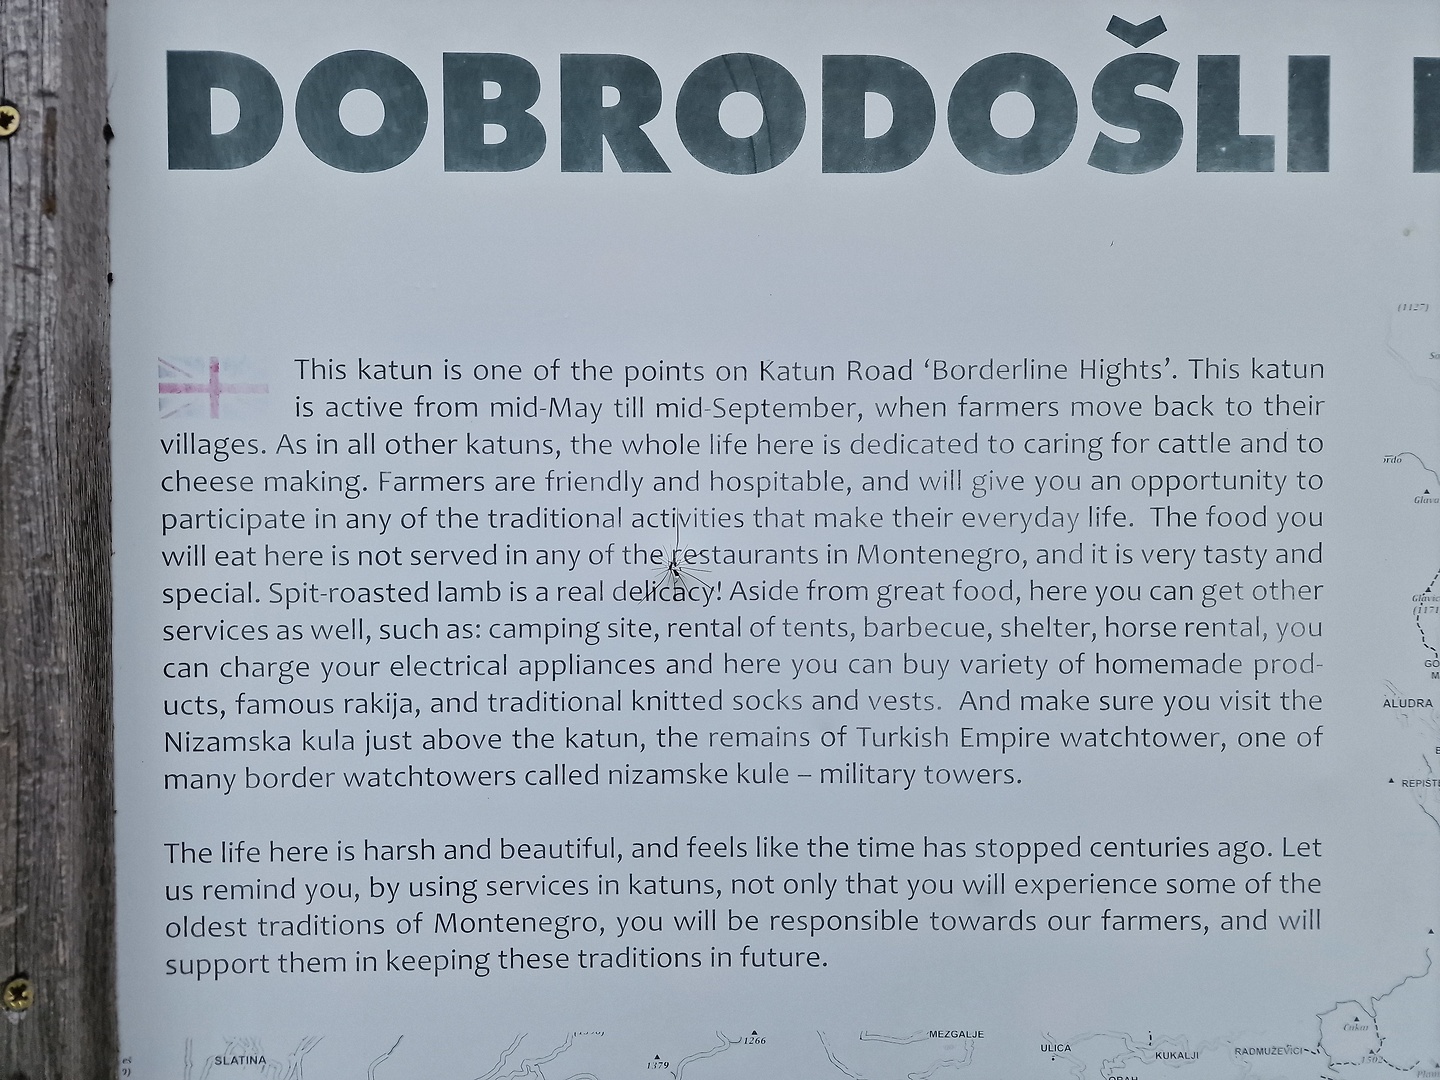 DOBRODOŠLI
This katun is one of the points on Katun Road ‘Borderline Hights’. This katun
is active from mid-May till mid-September, when farmers move back to their
villages. As in all other katuns, the whole life here is dedicated to caring for cattle and to
cheese making. Farmers are friendly and hospitable, and will give you an opportunity to
participate in any of the traditional activities that make their everyday life. The food you
will eat here is not served in any of the restaurants in Montenegro, and it is very tasty and
special. Spit-roasted lamb is a real delicacy! Aside from great food, here you can get other
services as well, such as: camping site, rental of tents, barbecue, shelter, horse rental, you
can charge your electrical appliances and here you can buy variety of homemade prod-
ucts, famous rakija, and traditional knitted socks and vests. And make sure you visit the
Nizamska kula just above the katun, the remains of Turkish Empire watchtower, one of
many border watchtowers called nizamske kule – military towers.
The life here is harsh and beautiful, and feels like the time has stopped centuries ago. Let
us remind you, by using services in katuns, not only that you will experience some of the
oldest traditions of Montenegro, you will be responsible towards our farmers, and will
support them in keeping these traditions in future.
(1127)
ALUDRA
SLATINA
1379
1266
MEZGALJE
ULICA
KUKALJI
RADMUŽEVIĆI